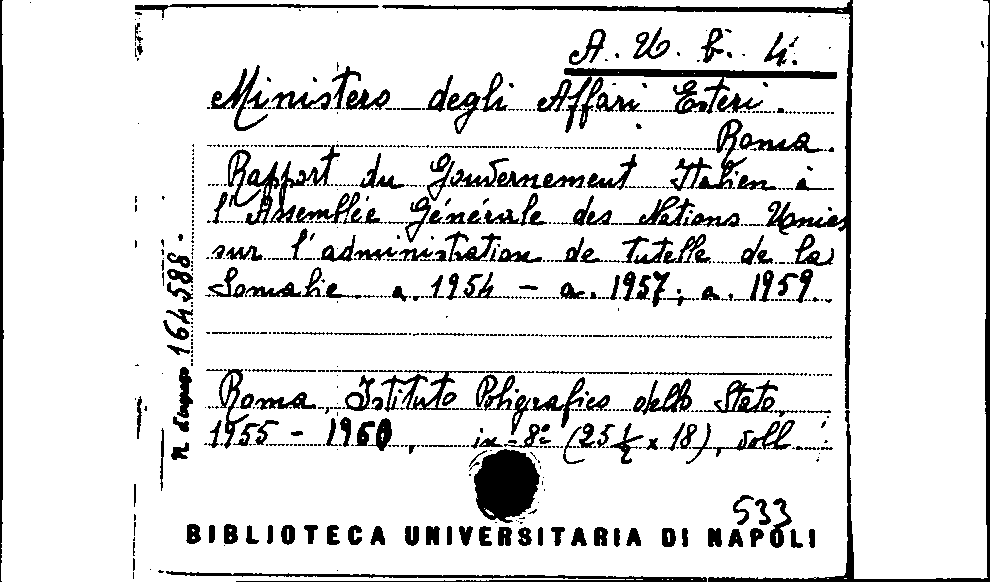 A. U. b. 4.
Ministero degli Affari Esteri.
Roma.
Rapport du Gouvernement Italien à
l'Assemblée Générale des Nations Unies
sur l'administration de tutelle de la
Somalie a. 1954 - a. 1957; a. 1959.
Roma, Istituto Poligrafico dello Stato,
1955 - 1960, in-8º (25½ x 18), voll.
533
BIBLIOTECA UNIVERSITARIA DI NAPOLI
N. d'ingresso 164588.